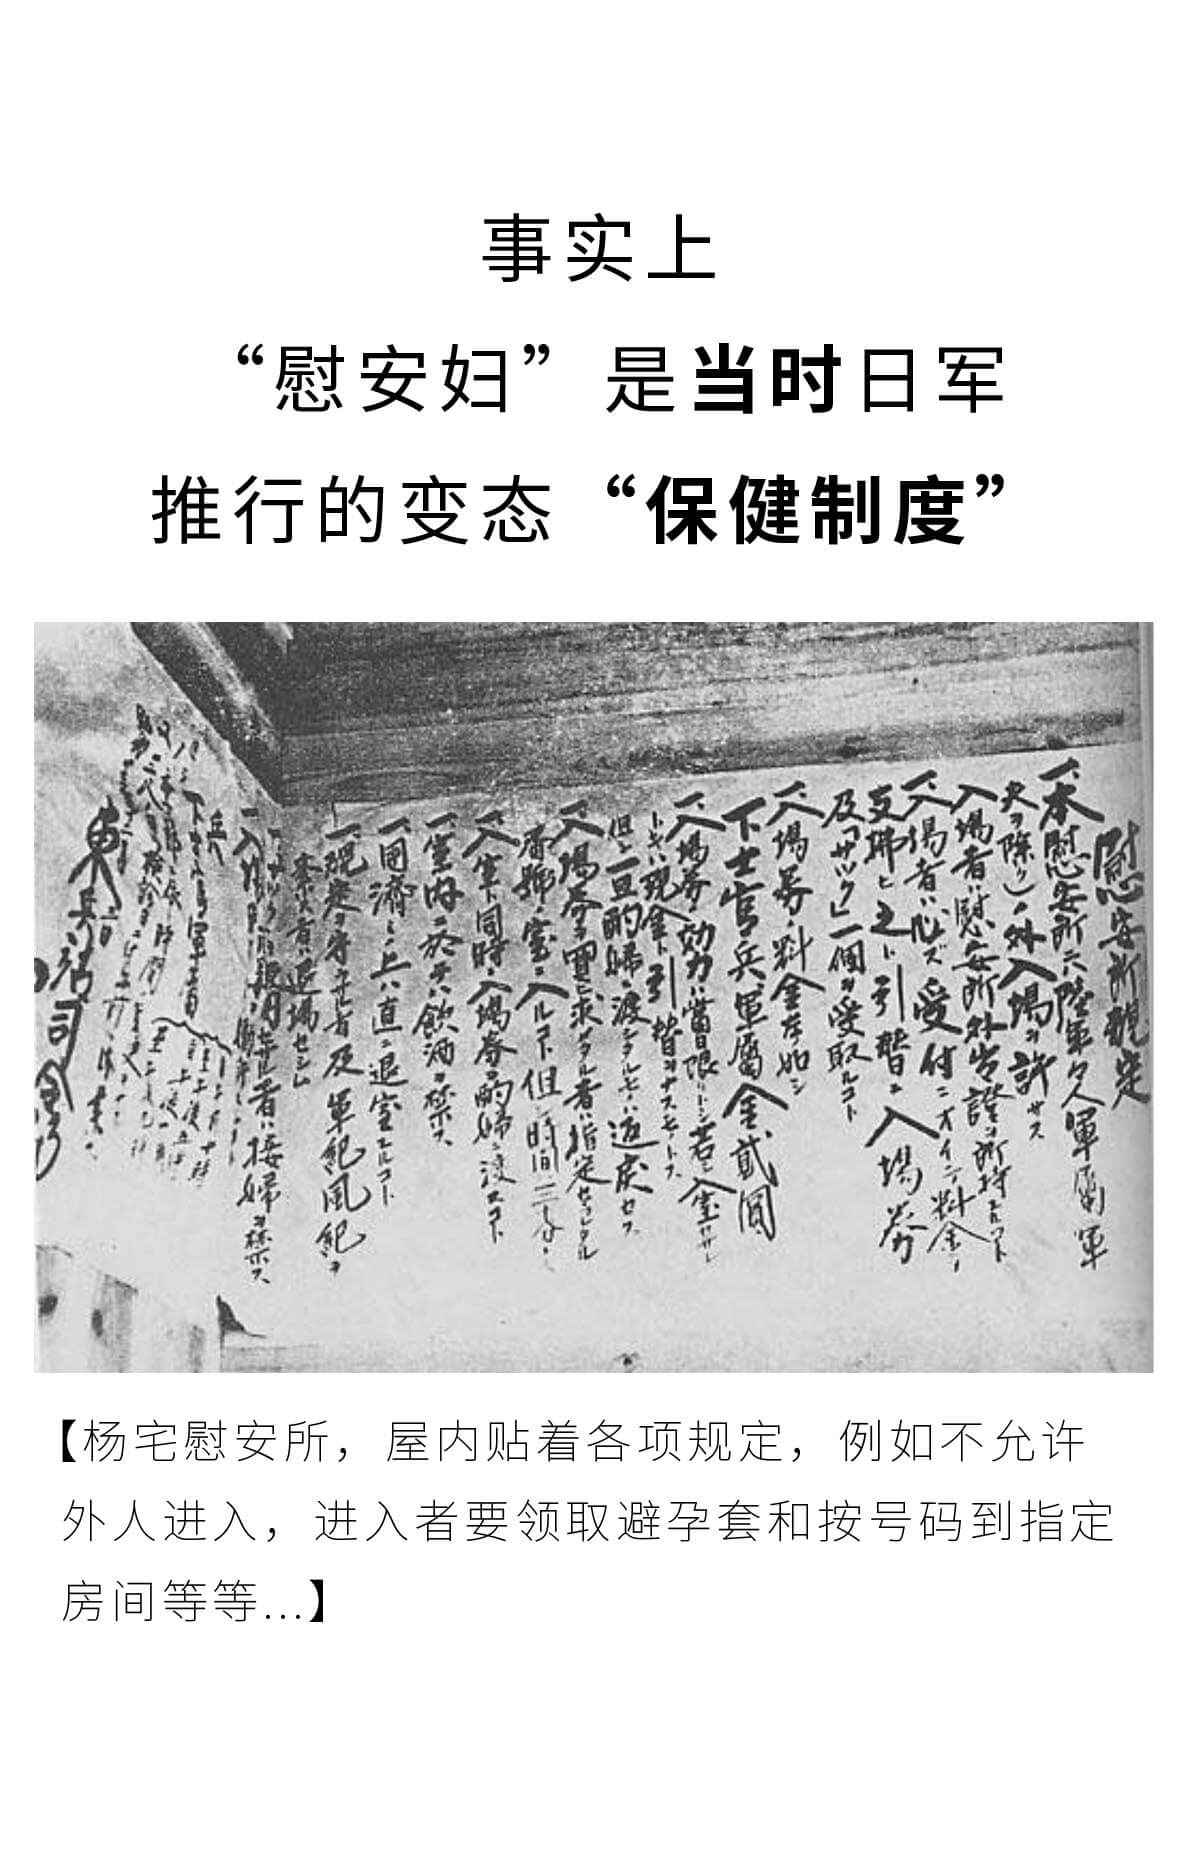 事实上
“慰安妇”是当时日军
推行的变态“保健制度”
慰安所規定
一、本慰安所ニハ陸軍々人軍屬(軍
夫ヲ除ク)ノ外入場ヲ許サス
入場者ハ慰安所外出證ヲ所持スルコト
一、入場者ハ必ズ受付ニオイテ料金ヲ
支拂ヒ之ト引替ニ入場券
及「サック」一個ヲ受取ルコト
一、入場券ノ料金左ノ如シ
下士官、兵、軍屬金貳圓
一、入場券ノ効力ハ當日限リトシ若シ入室セザル
トキハ現金ト引替ヲナスモノトス
但シ一旦酌婦ニ渡シタルモノハ返戻セズ
一、入場券ヲ買ヒ求メタル者ハ指定セラレタル
番號ノ室ニ入ルコト但シ時間ハ三十分トス
一、入室ト同時ニ入場券ヲ酌婦ニ渡スコト
一、室内ニ於テハ飲酒ヲ禁ス
一、用濟ミノ上ハ直ニ退室スルコト
一、規定ヲ守ラザル者及軍紀風紀ヲ
紊ス者ハ退場セシム
一、サックヲ使用セザル者ハ接婦ヲ禁ス
東兵站司令部
【杨宅慰安所，屋内贴着各项规定，例如不允许
外人进入，进入者要领取避孕套和按号码到指定
房间等等...】